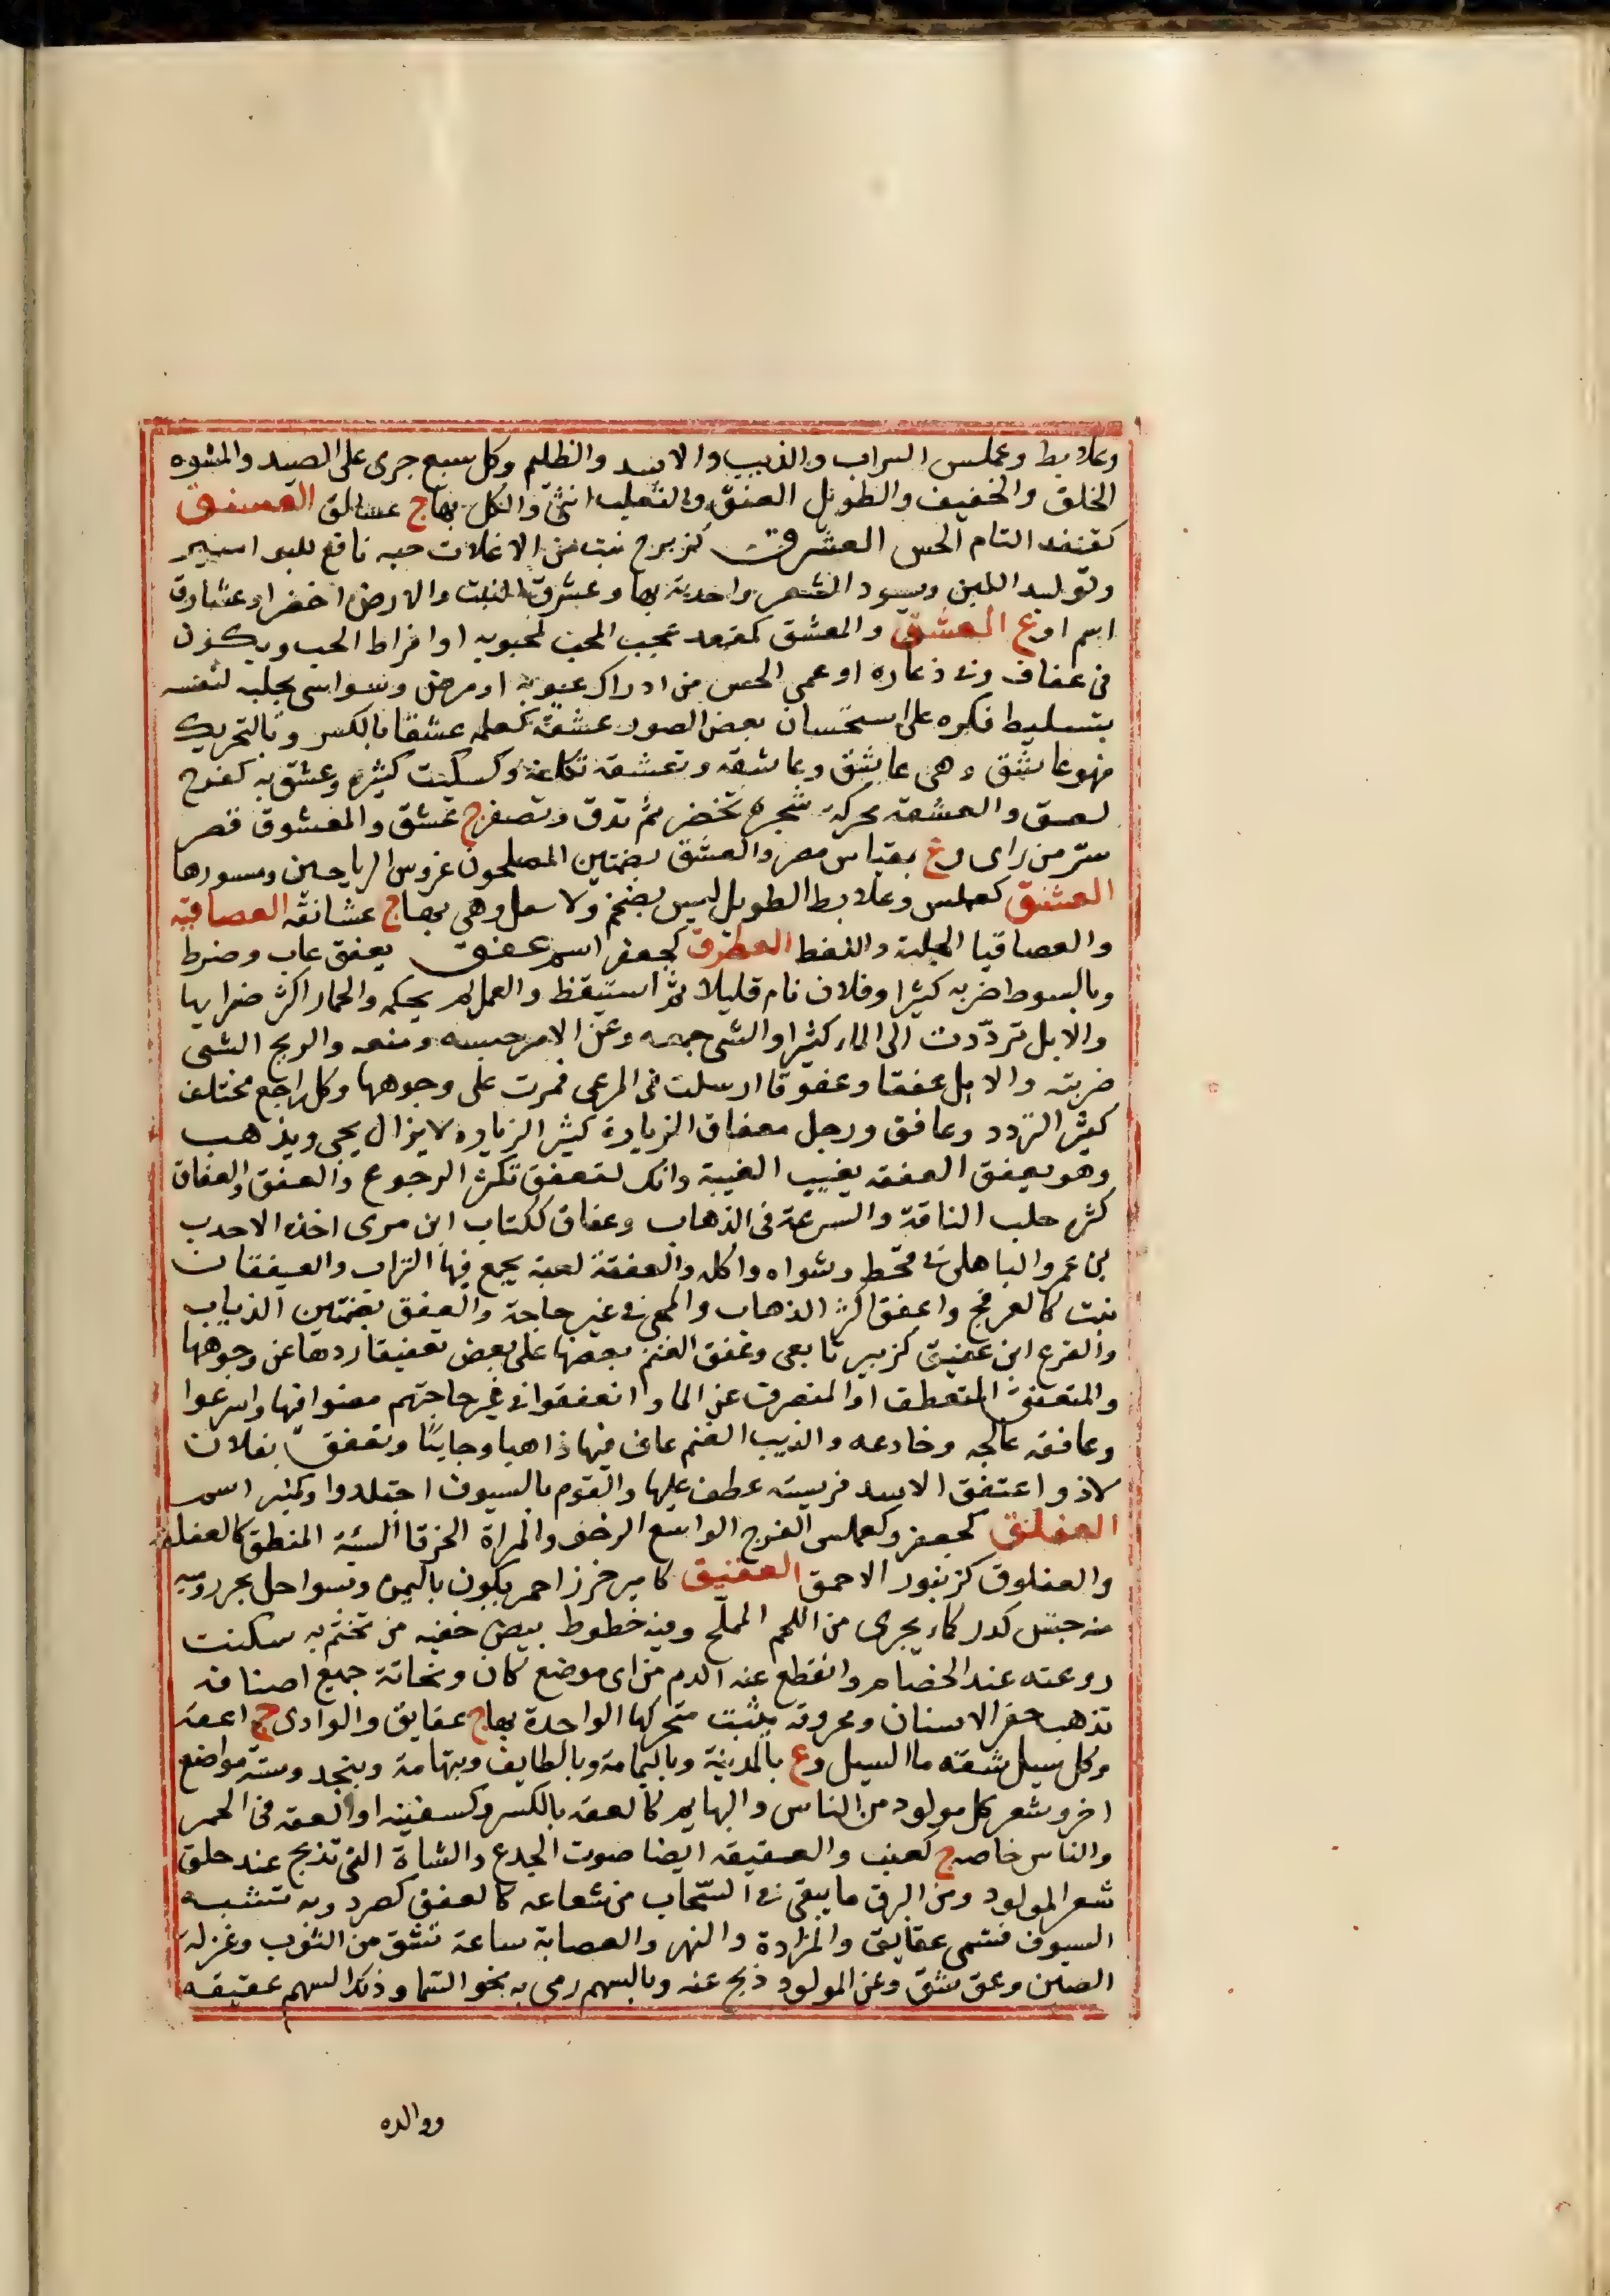 وعلابط وعملس السراب والذيب والاسد والظليم وكل سبع جرى على الصيد والمشوه
الخلق والخفيف والطويل العنق والثعلب انثى والكل بهاج عسالق العسنق
كقنفد التام الحس العشرق كزبرج نبت من الاغلاث حبه نافع للبواسير
وتوليد اللبن ويسود الشعر واحدته بها وعشرق النبت والارض اخضرا وعشارق
اسم اوع العشق والمعشق كمقعد عجب المحب لمحبوبه او افراط الحب ويكون
فى عفاف وفى ذعاره او عمى الحس من ادراك عيوبه او مرض وسواسى يجلبه لنفسه
بتسليط فكره على استحسان بعض الصور عشقه كعلمه عشقا بالكسر وبالتحريك
فهو عاشق وهى عاشق وعاشقه وتعشقه تكلفه وكسكيت كثيره وعشق به كفرح
لعسق والعشقه محركة شجرة تخضر ثم تدق وتصفر ج عشق والمعشوق قصر
سر من راى وع بمقياس مصر والعشق بضمتين المصلحون غروس الرياحين ومسورها
العشنق كعملس وعلابط الطويل ليس بضخم ولا مثقل وهى بهاج عشانقه العصاقيه
والعصاقيا الجلبة واللغط العطرق كجعفر اسم عفق يعفق غاب وضرط
وبالسوط ضربه كثيرا وفلان نام قليلا ثم استيقظ والعمل لم يحكمه والحمار اكثر ضرابها
والابل ترددت الى الماء كثيرا والشى جمعه وعن الامر حبسه ومنعه والريح الشى
ضربته والابل عفقا وعفوقا ارسلت فى المرعى فمرت على وجوهها وكل راجع مختلف
كثير التردد وعافق ورجل معفاق الزيارة كثير الزيارة لا يزال يجى ويذهب
وهو يعفق العفقه يغيب الغيبة وانك لتعفق تكثر الرجوع والعفق والعفاق
كثرة حلب الناقة والسرعة فى الذهاب وعفاق ككتاب ابن مرى اخذه الاحدب
بن عمرو الباهلى فى قحط وشواه واكله والعفقة لعبة يجمع فيها التراب والعيفقان
نبت كالعرفج واعفق اكثر الذهاب والمجى فى غير حاجة والعفق بضمتين الذياب
والفرع ابن عفيق كزبير تابعى وعفق الغنم بعضها على بعض تعفيقا ردها عن وجوهها
والمنعفق المنعطف او المنصرف عن الماء وانعفقوا فى حاجتهم مضوا فيها واسرعوا
وعافقه عالجه وخادعه والذيب الغنم عاث فيها ذاهبا وجايئا وتعفق بفلان
لاذ واعتفق الاسد فريسته عطف عليها والقوم بالسيوف اجتلدوا وكمنبر اسم
العفلق كجعفر وكعملس الفرج الواسع الرخو والمراة الخرقا السيئة المنطق كالعفلقه
والعفلوق كزنبور الاحمق العقيق كامير خرز احمر يكون باليمن وبسواحل بحر رومية
منه جنس كدر كماء يجرى من اللحم المملح وفيه خطوط بيض خفيه من تختم به سكنت
روعته عند الخصام وانقطع عنه الدم من اى موضع كان ونحاتة جميع اصنافه
تذهب حفر الاسنان ومحروقه يثبت متحركها الواحدة بهاج عقايق والوادى ج اعقه
وكل مسيل شقه ماالسيل وع بالمدينة وباليمامة وبالطايف وبتهامة وبنجد وستة مواضع
اخر وشعر كل مولود من الناس والبهايم كالعقه بالكسر وكسفينه او العقه فى الحمر
والناس خاصه ج كعنب والعقيقه ايضا صوف الجذع والشاة التى تذبح عند حلق
شعر المولود ومن البرق ما يبقى فى السحاب من شعاعه كالعقق كصرد وبه تشبه
السيوف فتسمى عقايق والمزادة والنهر والعصابة ساعة تشق من الثوب وغرلة
الصبى وعق شق وعن المولود ذبح عنه وبالسهم رمى به نحو السما وذلك السهم عقيقه
ووالده